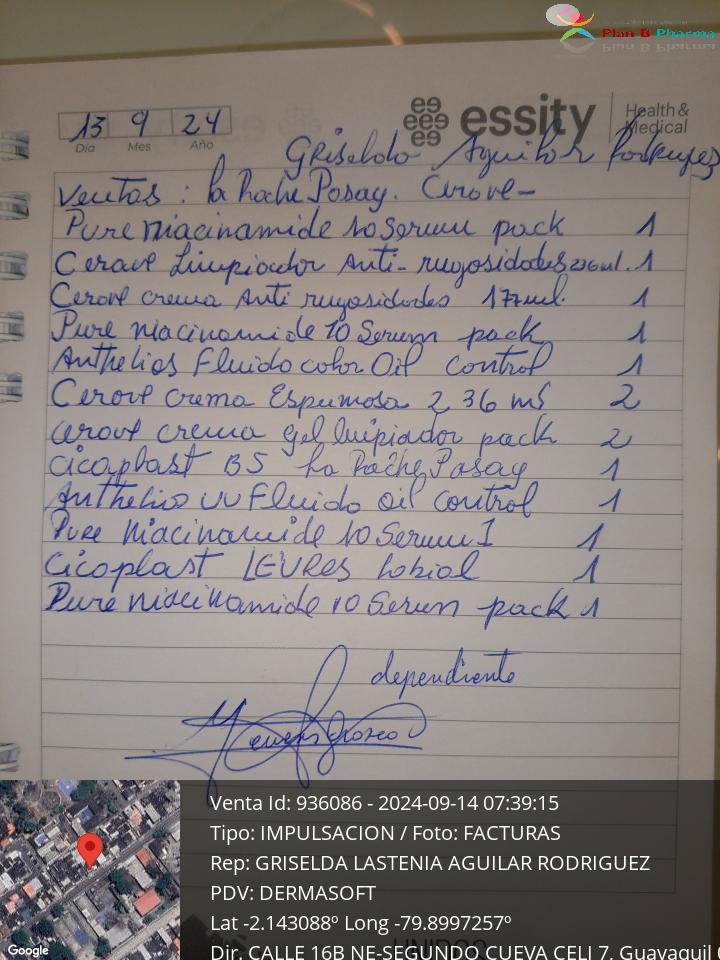 Plan B Pharma
essity
Health &
Medical
13 9 24
Día Mes Año
Griselda Aguilar Rodriguez
Ventas : La Roche Posay. Cerave-
Pure niacinamide 10 Serum pack 1
Cerave Limpiador Anti-rugosidades 236ml. 1
Cerave crema Anti rugosidades 177ml. 1
Pure niacinamide 10 Serum pack 1
Anthelios Fluido color Oil control 1
Cerave crema Espumosa 236 ml 2
cerave crema gel limpiador pack 2
Cicaplast B5 La Roche Posay 1
Anthelios UV Fluido oil control 1
Pure Niacinamide 10 Serum I 1
Cicaplast LEVRES Labial 1
Pure niacinamide 10 Serum pack 1
dependiente
Venta Id: 936086 - 2024-09-14 07:39:15
Tipo: IMPULSACION / Foto: FACTURAS
Rep: GRISELDA LASTENIA AGUILAR RODRIGUEZ
PDV: DERMASOFT
Lat -2.143088º Long -79.8997257º
Dir. CALLE 16B NE-SEGUNDO CUEVA CELI 7, Guayaquil
Google